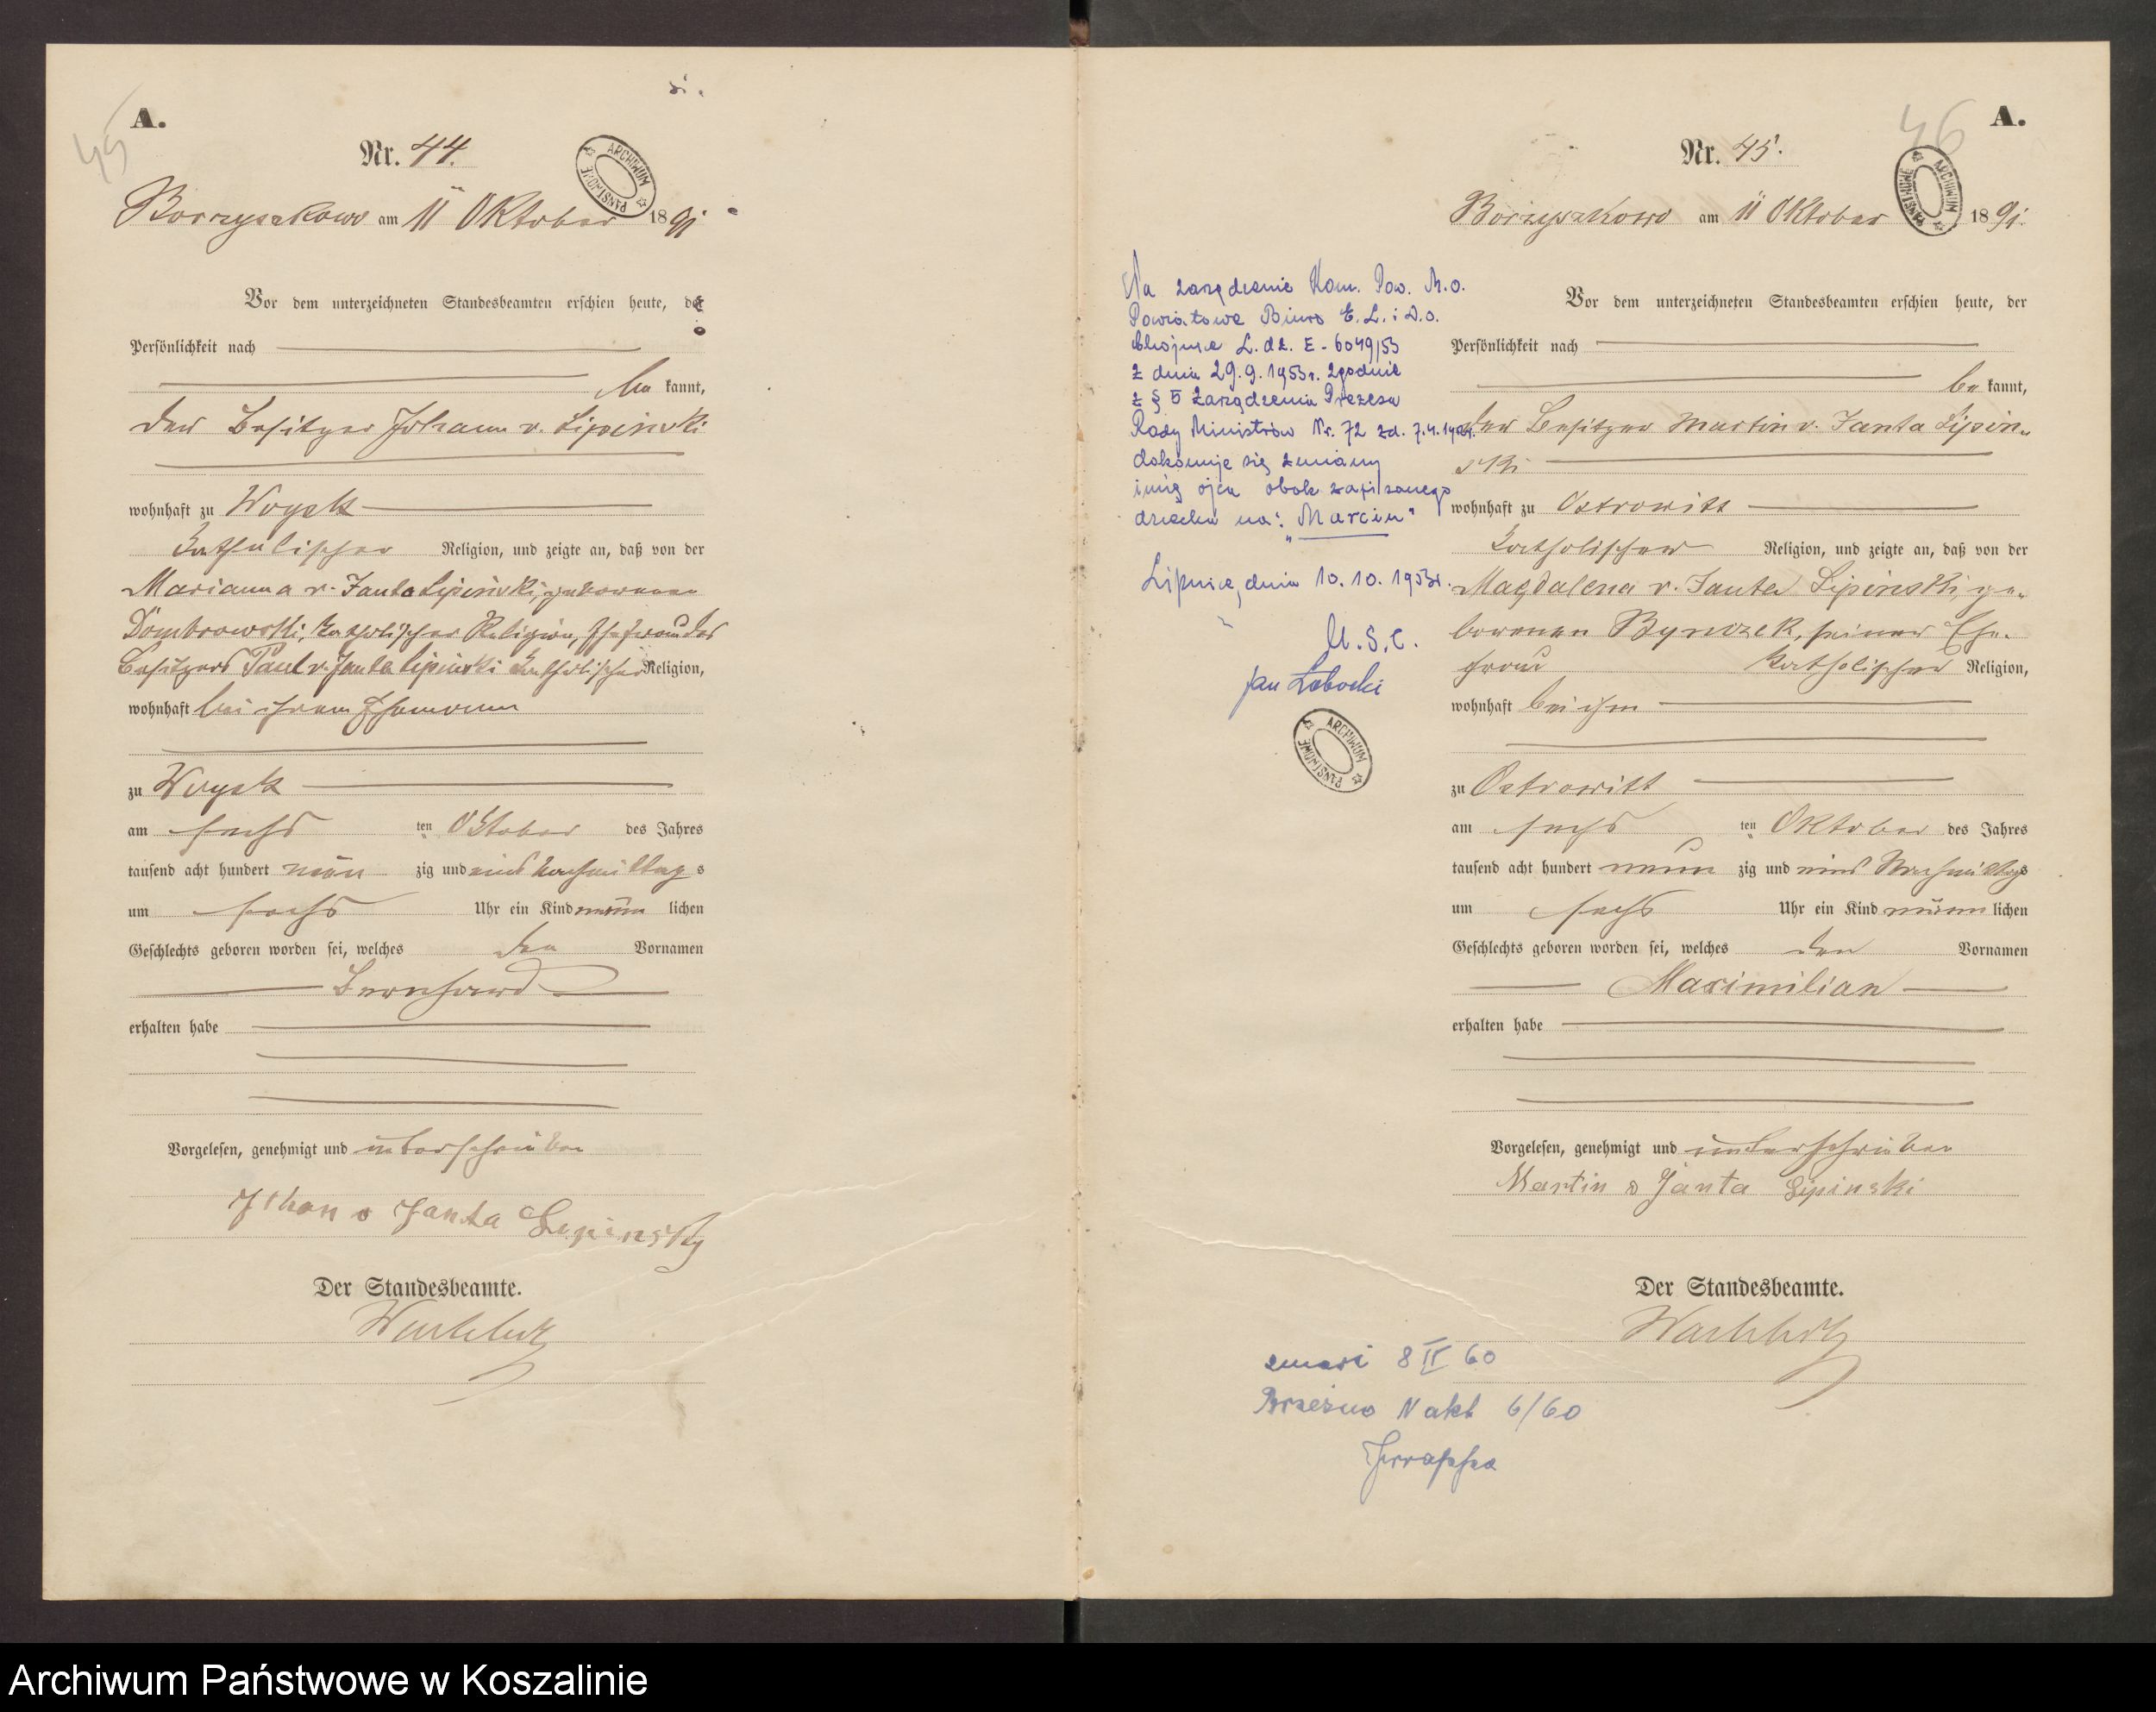 A.
45
Nr. 44.
ARCHIWUM PAŃSTWOWE
Borzyszkowo am 11 Oktober 1891
Vor dem unterzeichneten Standesbeamten erschien heute, der
Persönlichkeit nach
be kannt,
der Besitzer Johann v. Lipinski
wohnhaft zu Woysk
katholischer Religion, und zeigte an, daß von der
Marianna v. Janta Lipinski, geborenen
Dombrowski, katholischer Religion, Ehefrau des
Besitzers Paul v. Janta Lipinski katholischer Religion,
wohnhaft bei ihrem Ehemann
zu Woysk
am sechs ten Oktober des Jahres
tausend acht hundert neun zig und eins Nachmittag s
um sechs Uhr ein Kind männ lichen
Geschlechts geboren worden sei, welches den Vornamen
Bernhard
erhalten habe
Vorgelesen, genehmigt und unterschrieben
Johan v Janta Lepinsky
Der Standesbeamte.
Wachholz
A.
46
Nr. 45.
ARCHIWUM PAŃSTWOWE
Borzyszkowo am 11 Oktober 1891.
Vor dem unterzeichneten Standesbeamten erschien heute, der
Persönlichkeit nach
be kannt,
der Besitzer Martin v. Janta Lipin-
ski
wohnhaft zu Ostrowitt
katholischer Religion, und zeigte an, daß von der
Magdalena v. Janta Lipinski, ge-
borenen Bynczek, seiner Ehe-
frau katholischer Religion,
wohnhaft bei ihm
zu Ostrowitt
am sechs ten Oktober des Jahres
tausend acht hundert neun zig und eins Nachmittags
um sechs Uhr ein Kind männ lichen
Geschlechts geboren worden sei, welches den Vornamen
Maximilian
erhalten habe
Vorgelesen, genehmigt und unterschrieben
Martin v Janta Lipinski
Der Standesbeamte.
Wachholz
Na zarządzenie Kom. Pow. M.O.
Powiatowe Biuro E. L. i D.O.
Chojnice L. dz. E-6049/53
z dnia 29.9.1953r. zgodnie
z § 5 Zarządzenia Prezesa
Rady Ministrów Nr. 72 zd. 7.4.
dokonuje się zmiany
imię ojca obok zapisanego
dziecka na: "Marcin"
Lipnica, dnia 10.10.1953r.
U.S.C.
Jan Łabocki
ARCHIWUM PAŃSTWOWE
zmarł 8 II 60
Brzeźno N akt 6/60
Archiwum Państwowe w Koszalinie